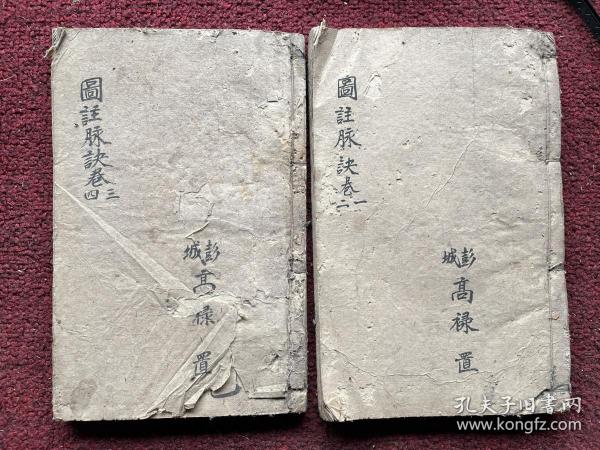 圖註脉訣卷一二
彭城
高祿置
圖註脉訣卷三四
彭城
高祿置
孔夫子旧书网
www.kongfz.com